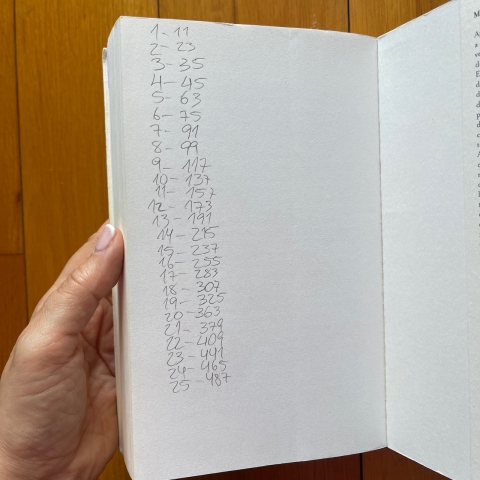 1-11
2-23
3-35
4-45
5-63
6-75
7-91
8-99
9-117
10-137
11-157
12-173
13-191
14-215
15-237
16-255
17-283
18-307
19-325
20-363
21-379
22-409
23-441
24-465
25-487